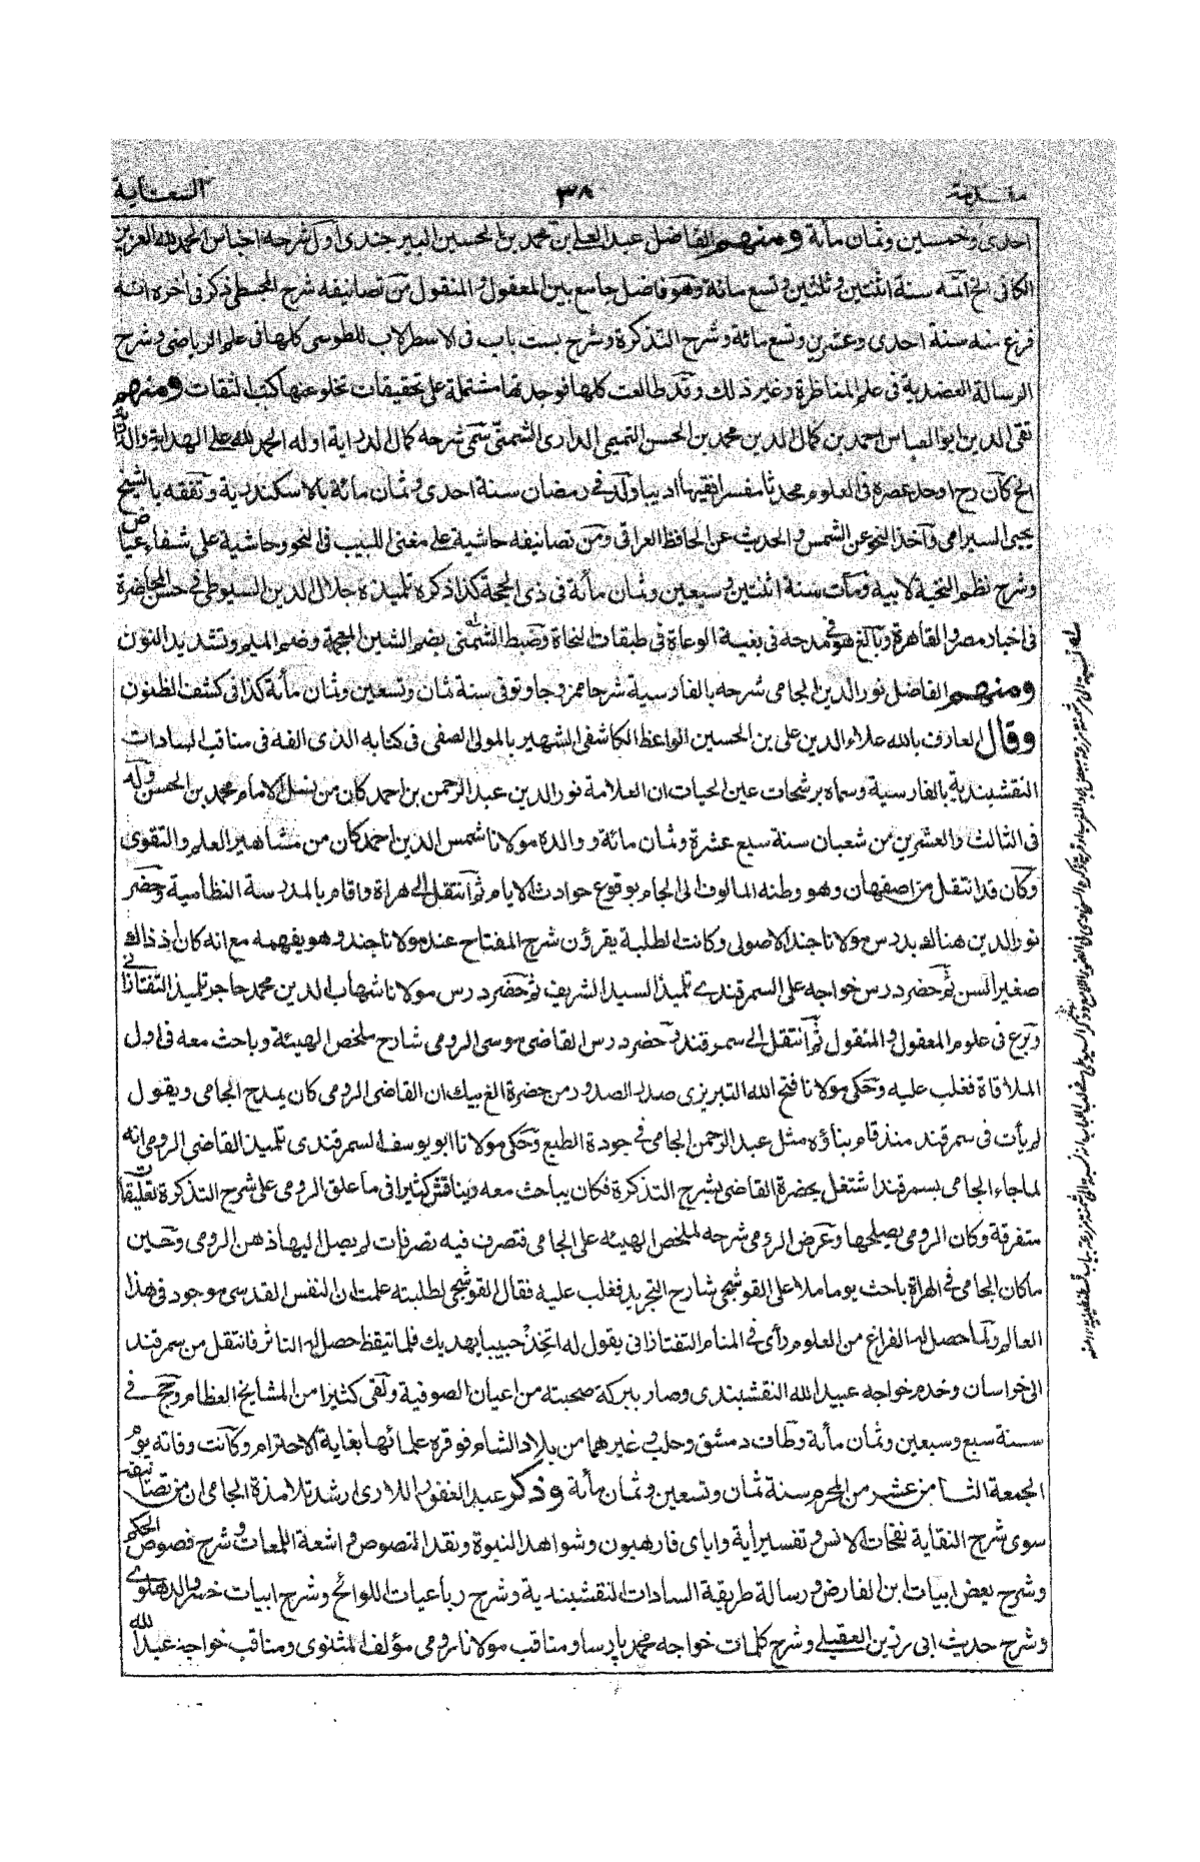 مقدمة
٣٨
السعاية
احدى وخمسين وثمان مأة ومنهم الفاضل عبد العلي بن محمد بن الحسين البيرجندى اول شرحه اجناس الحمد لله العزيز
الكافى الخ اتمه سنة اثنتين وثلثين وتسع مائة وهو فاضل جامع بين المعقول والمنقول من تصانيفه شرح المجسطى ذكر فى اخره انه
فرغ منه سنة احدى وعشرين وتسع مائة وشرح التذكرة وشرح بست باب فى الاسطرلاب للطوسى كلها فى علم الرياضى وشرح
الرسالة العضدية فى علم المناظرة وغير ذلك وقد طالعت كلها فوجدتها مشتملة على تحقيقات تخلو عنها كتب الثقات ومنهم
تقى الدين ابو العباس احمد بن كمال الدين محمد بن الحسن التميمى الدارى الشمنى سمى شرحه كمال الدراية اوله الحمد لله على الهداية والدراية
الخ كان رح اوحد عصره فى العلوم محدثا مفسرا فقيها اديبا ولد فى رمضان سنة احدى وثمان مائة بالاسكندرية وتفقه بالشيخ
يحيى السيرامى وآخذ النحو عن الشمس والحديث عن الحافظ العراقى ومن تصانيفه حاشية على مغنى اللبيب فى النحو وحاشية على شفاء عياض
وشرح نظم النخبة لابيه ومات سنة اثنتين وسبعين وثمان مأة فى ذى الحجة كذا ذكره تلميذه جلال الدين السيوطى فى حسن المحاضرة
فى اخبار مصر والقاهرة وبالغ هو فى مدحه فى بغية الوعاة فى طبقات النحاة وضبط الشمنى بضم الشين المعجمة وضم الميم وتشديد النون
ومنهم الفاضل نور الدين الجامى شرحه بالفارسية شرحا ممزوجا وتوفى سنة ثمان وتسعين وثمان مأة كذا فى كشف الظنون
وقال العارف بالله علاء الدين على بن الحسين الواعظ الكاشفى الشهير بالمولى الصفى فى كتابه الذى الفه فى مناقب السادات
النقشبندية بالفارسية وسماه برشحات عين الحيات ان العلامة نور الدين عبد الرحمن بن احمد كان من نسل الامام محمد بن الحسن ولد
فى الثالث والعشرين من شعبان سنة سبع عشرة وثمان مائة ووالده مولانا شمس الدين احمد كان من مشاهير العلم والتقوى
وكان قد انتقل من اصفهان وهو وطنه المالوف الى الجام بوقوع حوادث الايام ثم انتقل الى هراة واقام بالمدرسة النظامية وحضر
نور الدين هناك بدرس مولانا جند الاصولى وكانت الطلبة يقرؤن شرح المفتاح عند مولانا جند وهو يفهمه مع انه كان اذ ذاك
صغير السن ثم حضر درس خواجه على السمرقندى تلميذ السيد الشريف ثم حضر درس مولانا شهاب الدين محمد حاجر تلميذ التفتازانى
وبرع فى علوم المعقول والمنقول ثم انتقل الى سمرقند وحضر درس القاضى موسى الرومى شارح ملخص الهيئة وباحث معه فى اول
الملاقاة فغلب عليه وحكى مولانا فتح الله التبريزى صدر الصدور من حضرة الغ بيك ان القاضى الرومى كان يمدح الجامى ويقول
لم يأت فى سمرقند منذ قام بناؤه مثل عبد الرحمن الجامى فى جودة الطبع وحكى مولانا ابو يوسف السمرقندى تلميذ القاضى الرومى انه
لما جاء الجامى بسمرقند اشتغل بحضرة القاضى بشرح التذكرة فكان يباحث معه ويناقش كثيرا فى ما علق الرومى على شرح التذكرة تعليقات
متفرقة وكان الرومى يصلحها وعرض الرومى شرحه لملخص الهيئه على الجامى فتصرف فيه تصرفات لم يصل اليها ذهن الرومى وحين
ما كان الجامى فى الهراة باحث يوما ملا على القوشجى شارح التجريد فغلب عليه فقال القوشجى لطلبته علمت ان النفس القدسى موجود فى هذا
العالم ولما حصل له الفراغ من العلوم رأى فى المنام التفتازانى يقول له اتخذ حبيبا يهديك فلما تيقظ حصل له التاثر فانتقل من سمرقند
الى خراسان وخدم خواجه عبيد الله النقشبندى وصار ببركة صحبته من اعيان الصوفية ولقى كثيرا من المشايخ العظام وحج فى
سنة سبع وسبعين وثمان مأة وطاف دمشق وحلب وغيرهما من بلاد الشام فوقره علمائها بغاية الاحترام وكانت وفاته يوم
الجمعة الثامن عشر من المحرم سنة ثمان وتسعين وثمان مأة وذكر عبد الغفور اللارى ارشد تلامذة الجامى ان من تصانيفه
سوى شرح النقاية نفحات الانس وتفسير أية واياى فارهبون وشواهد النبوة ونقد النصوص واشعة اللمعات وشرح فصوص الحكم
وشرح بعض ابيات ابن الفارض ورسالة طريقة السادات النقشبندية وشرح رباعيات اللوائح وشرح ابيات خسرو الدهلوى
وشرح حديث ابى رزين العقيلى وشرح كلمات خواجه محمد پارسا ومناقب مولانا رومى مؤلف المثنوى ومناقب خواجه عبد الله